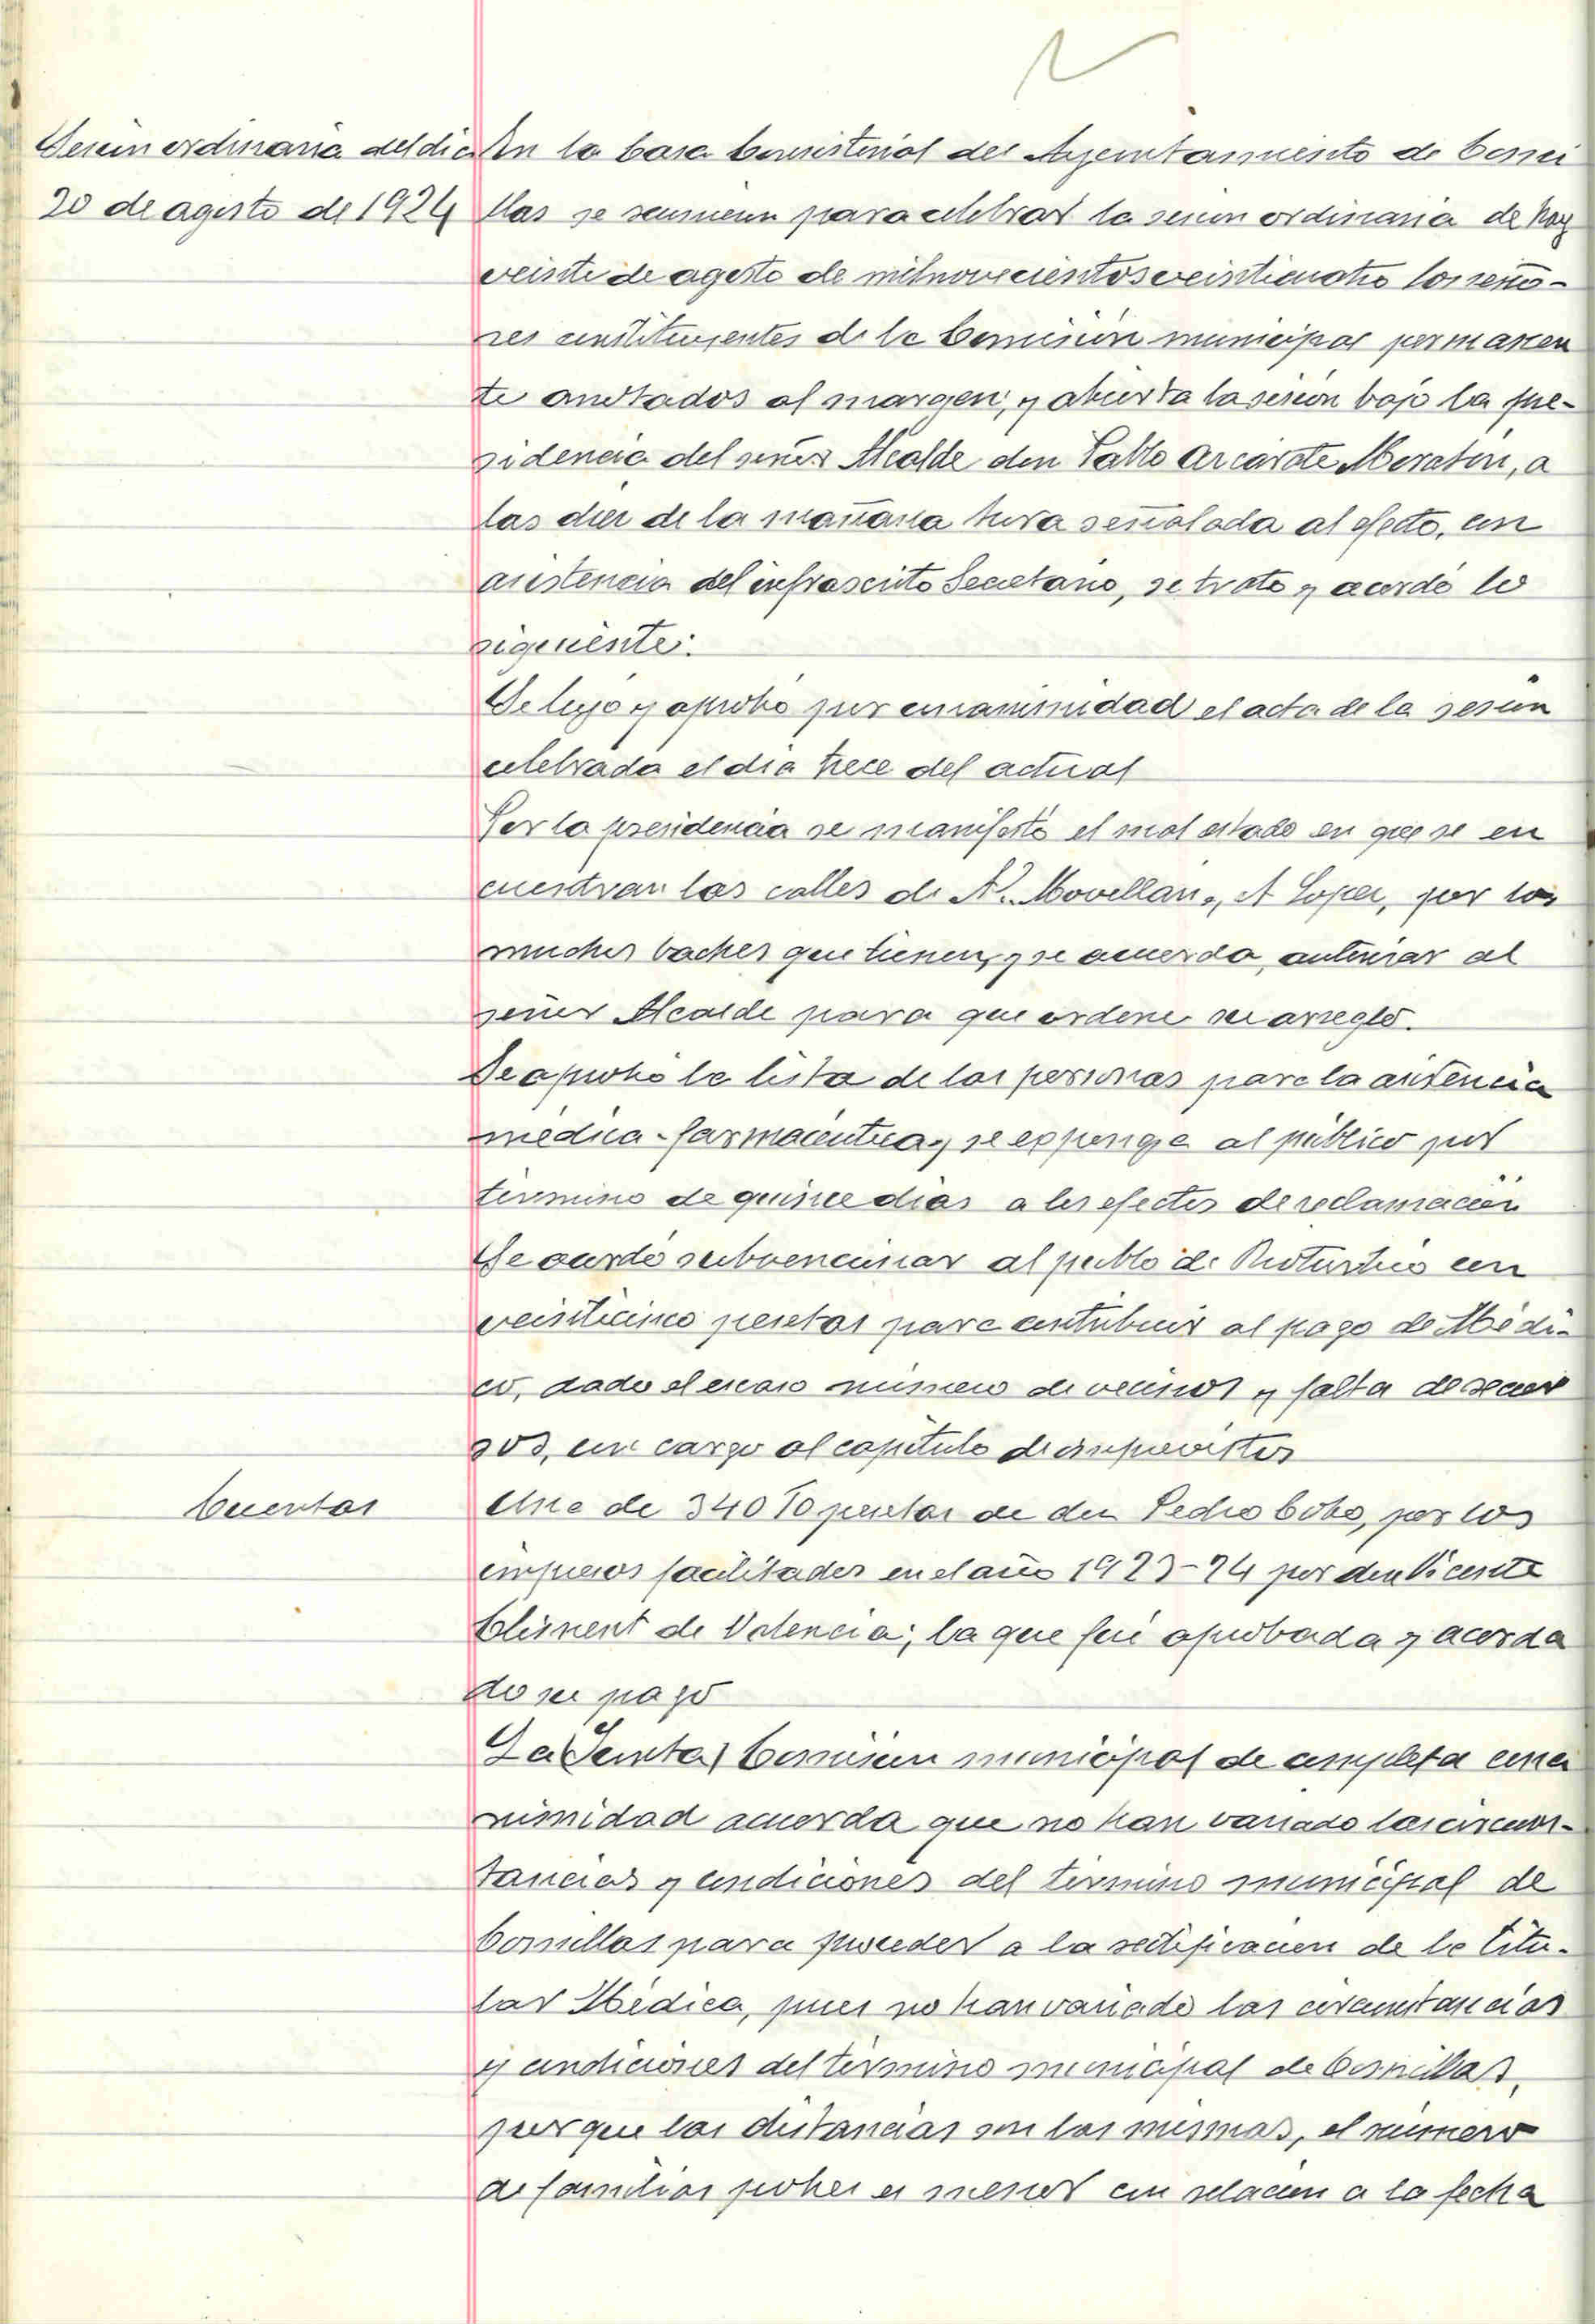 Sesión ordinaria del dia
20 de agosto de 1924
En la Casa Consistorial del Ayuntamiento de Comi
llas se reunieron para celebrar la sesion ordinaria de hoy
veinte de agosto de mil novecientos veinticuatro los seño-
res constituyentes de la Comisión municipal permanen
te anotados al margen, y abierta la sesion bajo la pre-
sidencia del señor Alcalde don Pablo Arcarate Moratin, a
las diez de la mañana hora señalada al efecto, con
asistencia del infrascrito Secretario, se trato y acordó lo
siguiente:
Se leyó y aprobó por unanimidad el acta de la sesion
celebrada el dia trece del actual
Por la presidencia se manifestó el mal estado en que se en
cuentran las calles de A. Movellan y A Lopez, por los
muchos baches que tienen, y se acuerda autorizar al
señor Alcalde para que ordene su arreglo.
Se aprobó la lista de las personas para la asistencia
médica-farmaceutica y se exponga al público por
término de quince dias a los efectos de reclamación
Se acordó subvencionar al pueblo de Rioturbio con
veinticinco pesetas para contribuir al pago de Médi-
co, dado el escaso número de vecinos y falta de recur
sos, con cargo al capitulo de imprevistos
Cuentas
Una de 340 10 pesetas de don Pedro Cobo, por los
impresos facilitados en el año 1923-24 por don Vicente
Climent de Valencia; la que fué aprobada y acorda
do su pago
La Junta) Comision municipal de completa una
nimidad acuerda que no han variado las circuns-
tancias y condiciones del término municipal de
Comillas para proceder a la rectificacion de la Titu-
lar Médica, pues no han variado las circunstancias
y condiciones del término municipal de Comillas,
porque las distancias son las mismas, el número
de familias pobres es menor con relacion a la fecha